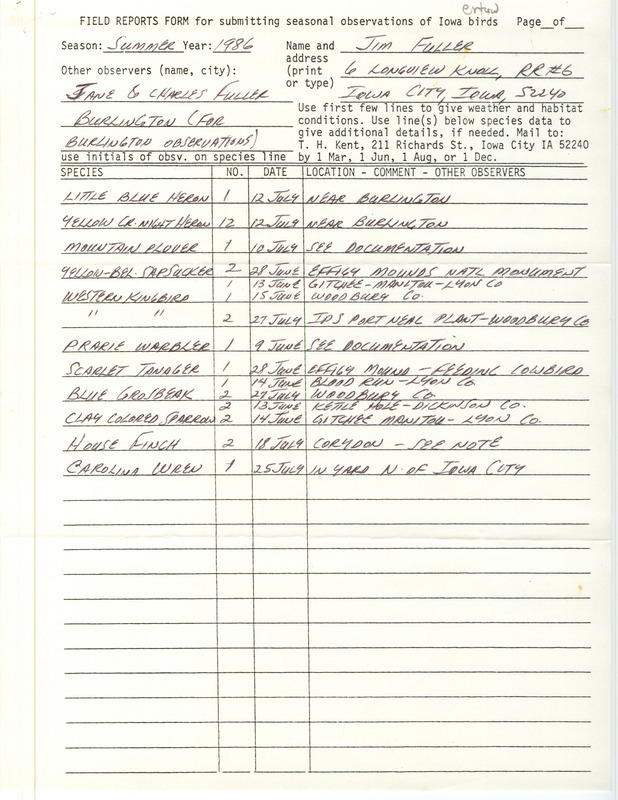 enter
FIELD REPORTS FORM for submitting seasonal observations of Iowa birds Page__of__
Season: SUMMER Year: 1986 Name and JIM FULLER
address
Other observers (name, city): (print 6 LONGVIEW KNOLL, RR#6
or type)
JANE & CHARLES FULLER IOWA CITY, IOWA, 52240
BURLINGTON (FOR Use first few lines to give weather and habitat
conditions. Use line(s) below species data to
BURLINGTON OBSERVATIONS) give additional details, if needed. Mail to:
T. H. Kent, 211 Richards St., Iowa City IA 52240
use initials of obsv. on species line by 1 Mar, 1 Jun, 1 Aug, or 1 Dec.
SPECIES NO. DATE LOCATION - COMMENT - OTHER OBSERVERS
LITTLE BLUE HERON 1 12 JULY NEAR BURLINGTON
YELLOW CR. NIGHT HERON 12 12 JULY NEAR BURLINGTON
MOUNTAIN PLOVER 1 10 JULY SEE DOCUMENTATION
YELLOW-BEL. SAPSUCKER 2 28 JUNE EFFIGY MOUNDS NATL MONUMENT
1 13 JUNE GITCHEE-MANITOU-LYON CO
WESTERN KINGBIRD 1 15 JUNE WOODBURY CO.
" " 2 27 JULY IPS PORT NEAL PLANT-WOODBURY CO
PRARIE WARBLER 1 9 JUNE SEE DOCUMENTATION
SCARLET TANAGER 1 28 JUNE EFFIGY MOUND - FEEDING COWBIRD
1 14 JUNE BLOOD RUN-LYON CO.
BLUE GROSBEAK 2 27 JULY WOODBURY CO.
2 13 JUNE KETTLE HOLE-DICKINSON CO.
CLAY COLORED SPARROW 2 14 JUNE GITCHEE MANITOU-LYON CO.
HOUSE FINCH 2 18 JULY CORYDON - SEE NOTE
CAROLINA WREN 1 25 JULY IN YARD N. OF IOWA CITY